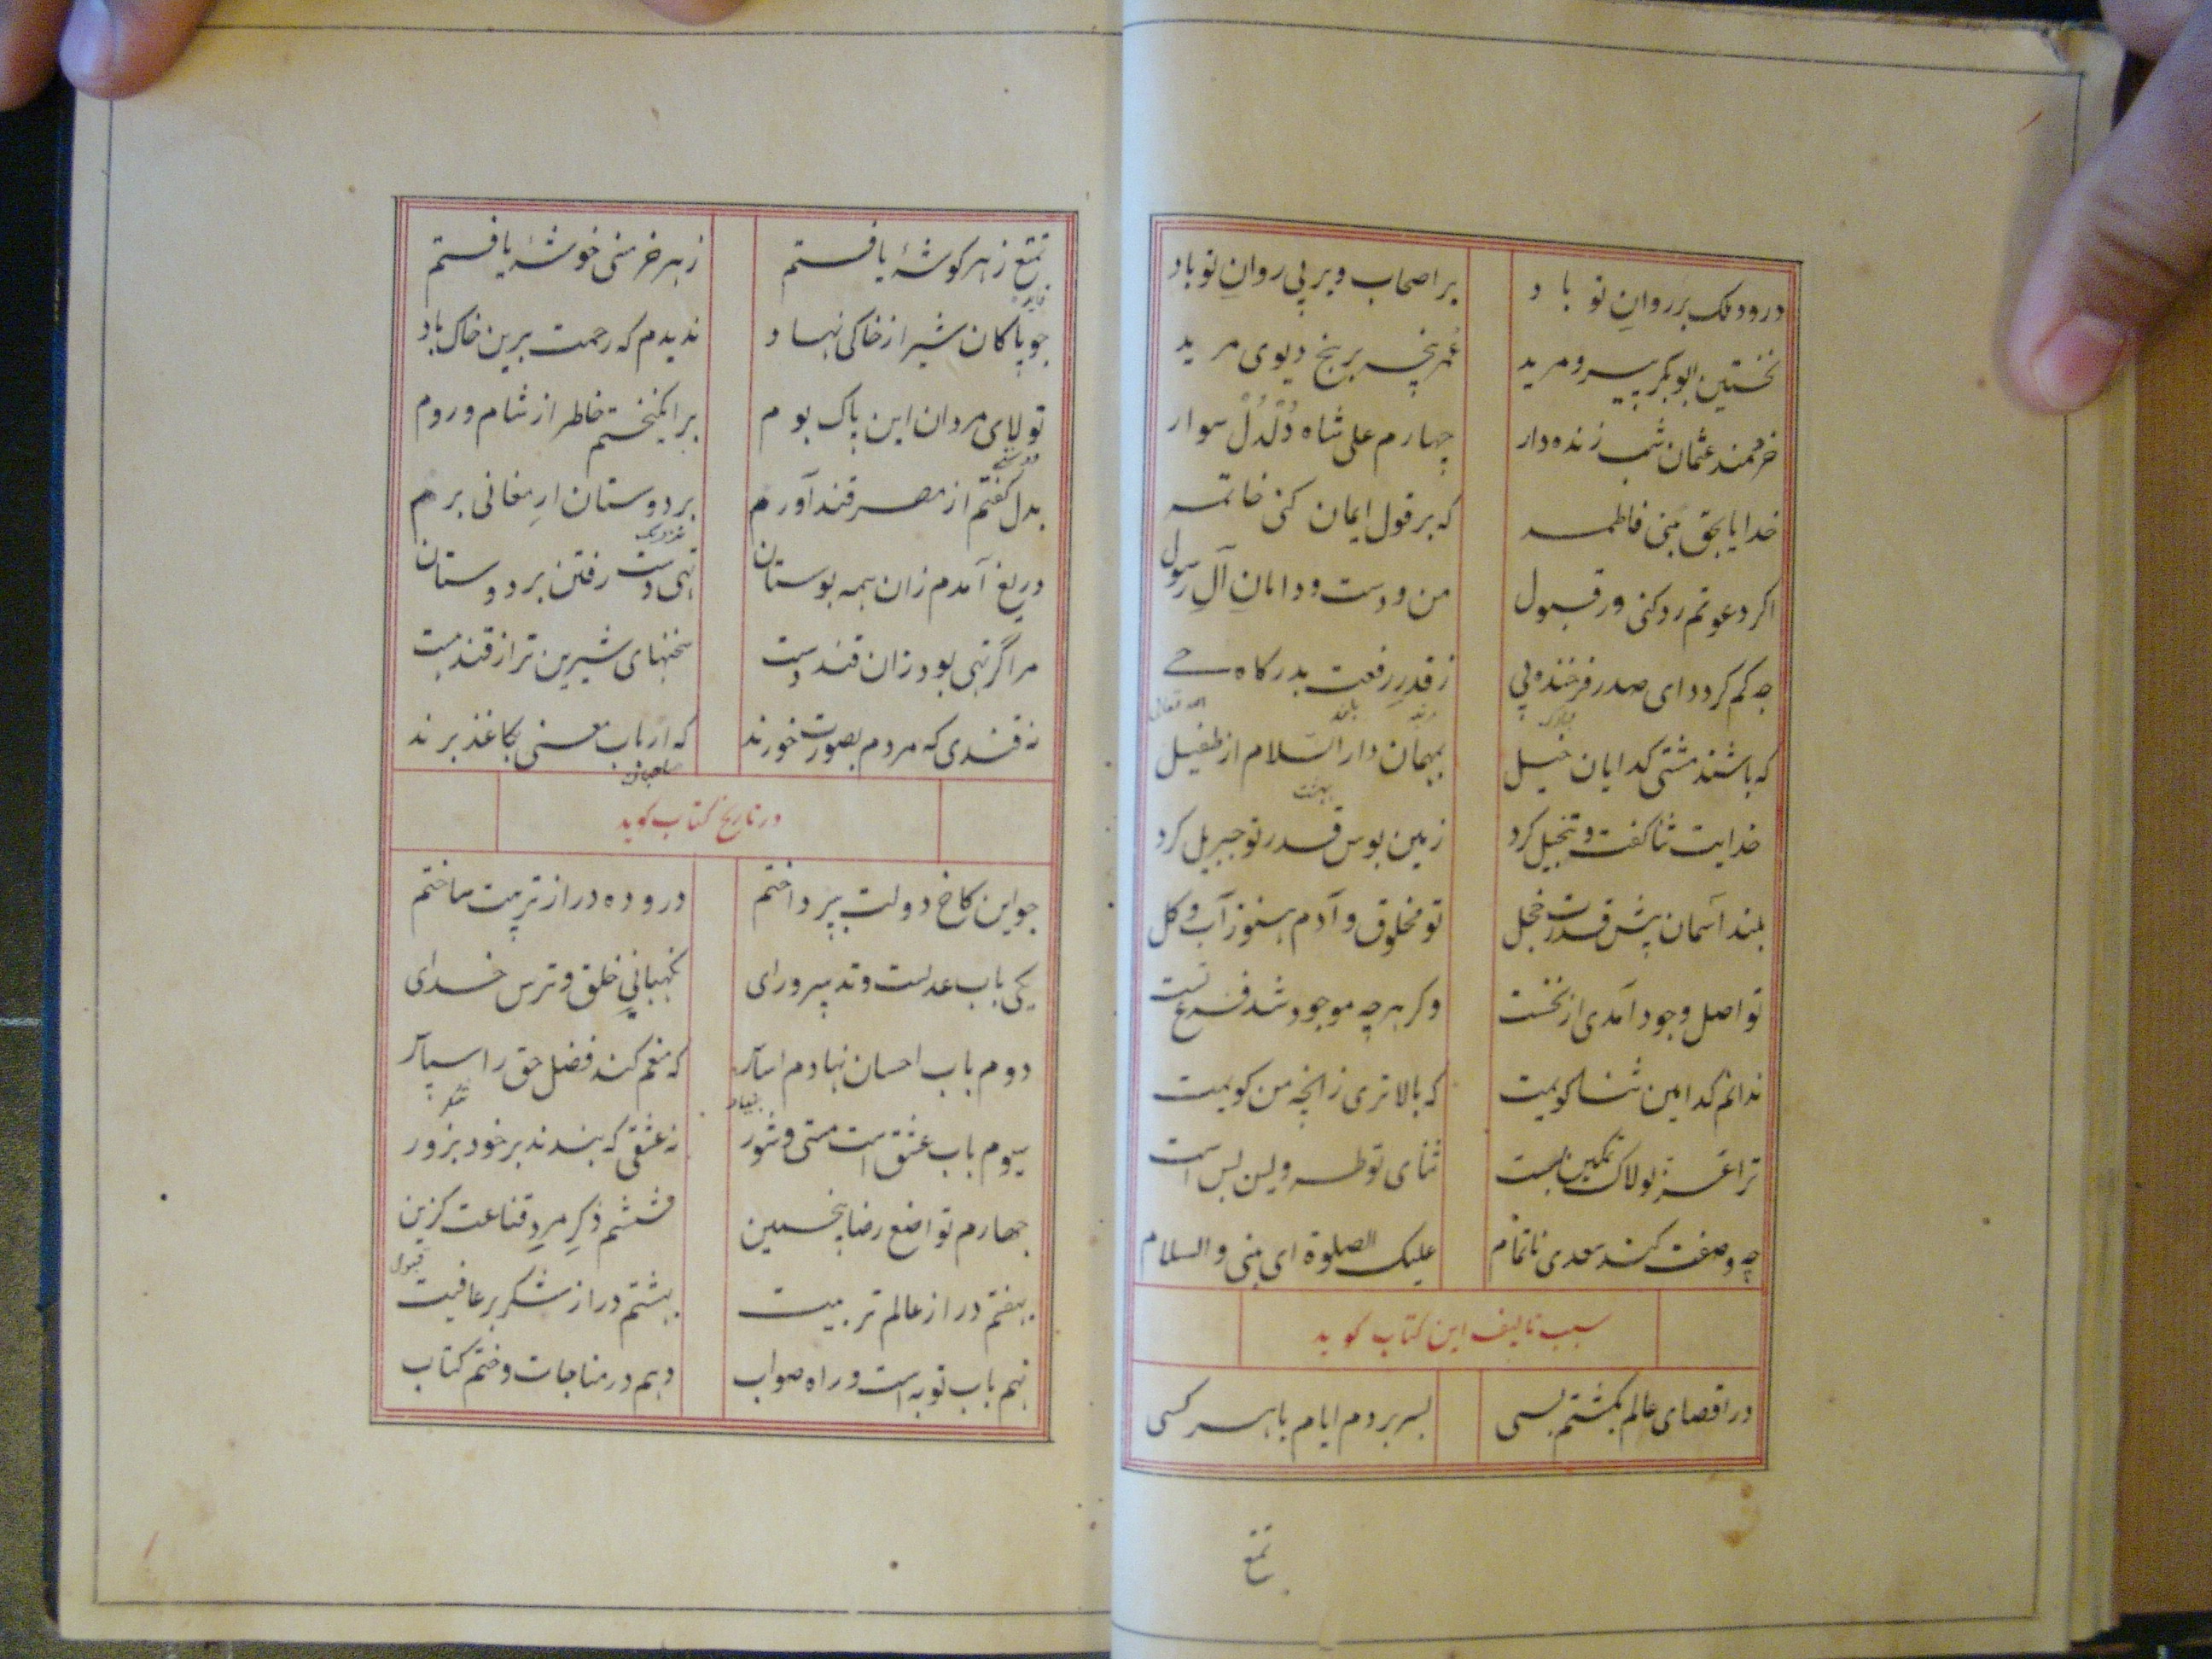 درود ملک بر روانِ تو باد بر اصحاب و بر پی روانِ تو باد
نخستین ابوبکر پیر و مرید عُمر پنجه بر پیچ دیوی مرید
خردمند عثمان شب زنده دار چهارم علی شاه دُلْدُلْ سوار
خدایا بحق بنی فاطمه که بر قول ایمان کنی خاتمه
اگر دعوتم رد کنی ور قبول من و دست و دامانِ آلِ رسول
چه کم گردد ای صدر فرخنده پی ز قدرِ رفعت بدرگاه حی
مبارک
الله تعالی
که باشند مشتی گدایان خیل بمهمان دار السّلام از طفیل
بهشت
خدایت ثنا گفت و تبجیل کرد زمین بوس قدر تو جبریل کرد
بلند آسمان پیش قدرت خجل تو مخلوق و آدم هنوز آب و گل
تو اصل وجود آمدی از نخست وگر هر چه موجود شد فرع تست
ندانم کدامین ثنا گویمت که بالاتری زانچه من گویمت
ترا عز لولاک تمکین بست ثنای تو طه و یس بس است
چه وصفت کند سعدی ناتمام علیک الصلوة ای نبی والسلام
سبب تالیف این کتاب گوید
در اقصای عالم بگشتم بسی بسر بردم ایام با هر کسی
تمتع
تمتع ز هر گوشهٔ یافتم ز هر خرمنی خوشهٔ یافتم
فایده
چو پاکان شیراز خاکی نهاد ندیدم که رحمت برین خاک باد
تولای مردان این پاک بوم برانگیختم خاطر از شام و روم
دوستی
بدل گفتم از مصر قند آورم بر دوستان ارمغانی برم
نزدیک
دریغ آمدم زان همه بوستان تهی دست رفتن بر دوستان
مرا گر تهی بود زان قند دست سخنهای شیرین تر از قند هست
نه قندی که مردم بصورت خورند که ارباب معنی بکاغذ برند
صاحبان
در تاریخ کتاب گوید
چو این کاخ دولت بپرداختم درو ده در از تربیت ساختم
یکی باب عدلست و تدبیر و رای نگهبانیِ خلق و ترس خدای
دوم باب احسان نهادم اساس که منعم کند فضل حق را سپاس
بنیاد
شکر
سیوم باب عشق است مستی و شور نه عشقی که بندند بر خود بزور
چهارم تواضع رضا پنجمین ششم ذکرِ مردِ قناعت گزین
قبول
بهفتم در از عالم تربیت بهشتم در از شکر بر عافیت
نهم باب توبه است و راه صواب دهم در مناجات و ختم کتاب